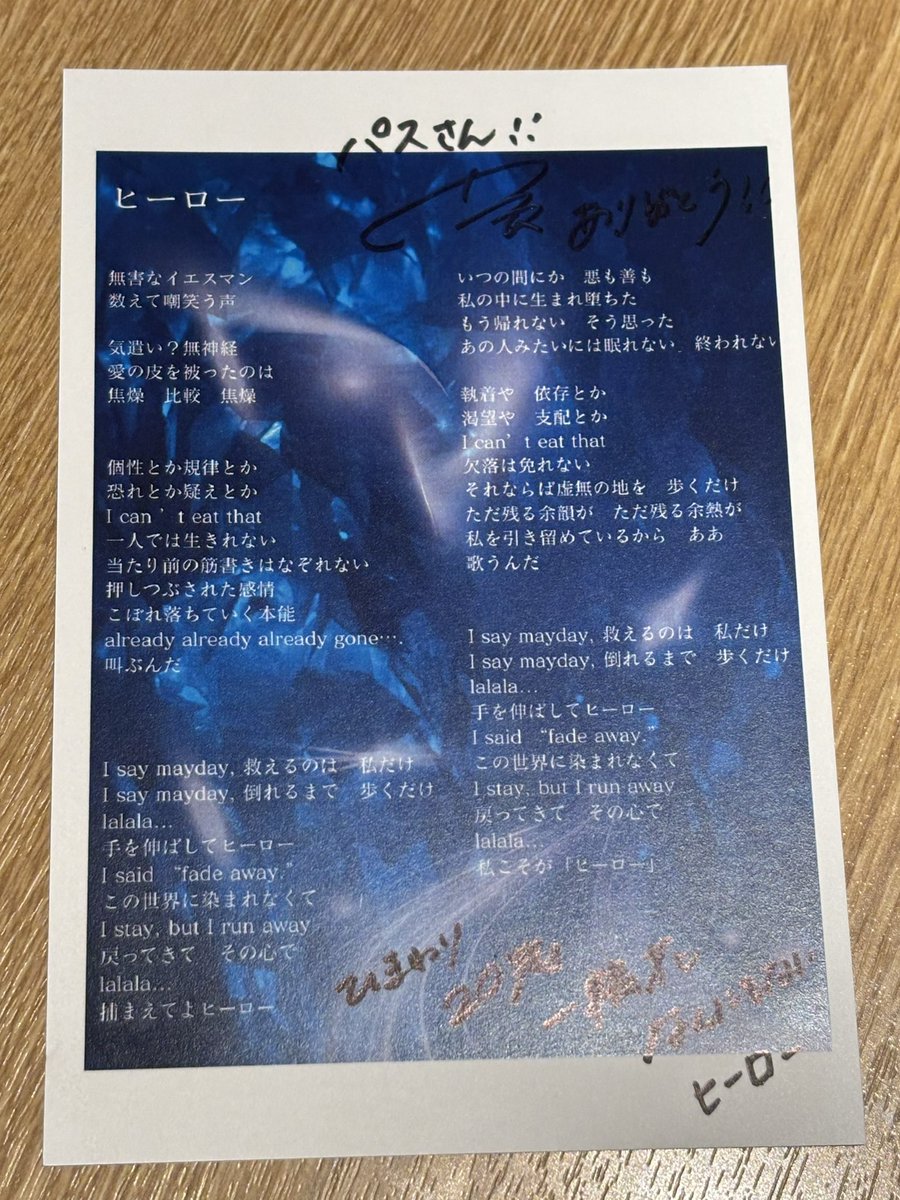 パスさん!!
ありがとう!!
ヒーロー
無害なイエスマン
数えて嘲笑う声
気遣い？無神経
愛の皮を被ったのは
焦燥　比較　焦燥
個性とか規律とか
恐れとか疑えとか
I can't eat that
一人では生きれない
当たり前の筋書きはなぞれない
押しつぶされた感情
こぼれ落ちていく本能
already already already gone….
叫ぶんだ
I say mayday, 救えるのは　私だけ
I say mayday, 倒れるまで　歩くだけ
lalala…
手を伸ばしてヒーロー
I said “fade away.”
この世界に染まれなくて
I stay, but I run away
戻ってきて　その心で
lalala…
捕まえてよヒーロー
いつの間にか　悪も善も
私の中に生まれ堕ちた
もう帰れない　そう思った
あの人みたいには眠れない　終われない
執着や　依存とか
渇望や　支配とか
I can't eat that
欠落は免れない
それならば虚無の地を　歩くだけ
ただ残る余韻が　ただ残る余熱が
私を引き留めているから　ああ
歌うんだ
I say mayday, 救えるのは　私だけ
I say mayday, 倒れるまで　歩くだけ
lalala…
手を伸ばしてヒーロー
I said “fade away.”
この世界に染まれなくて
I stay, but I run away
戻ってきて　その心で
lalala…
私こそが「ヒーロー」
ひまわり
ヒーロー